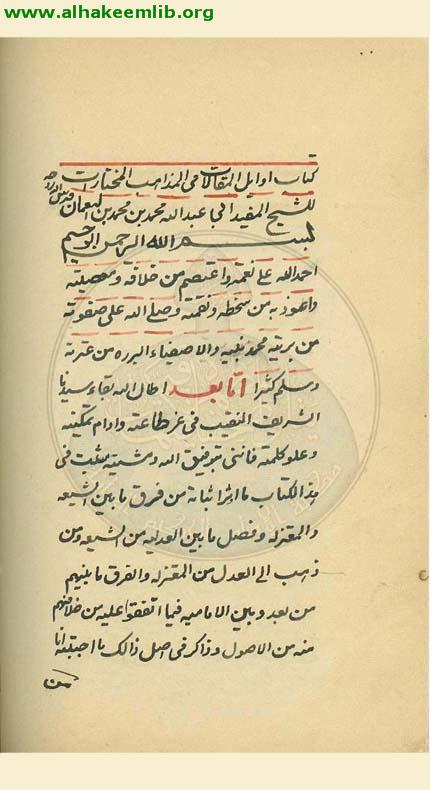 www.alhakeemlib.org
كتاب اوايل المقالات في المذاهب المختارات
للشيخ المفيد ابي عبد الله محمد بن محمد بن النعمان قدس الله روحه
بسم الله الرحمن الرحيم
احمد الله على نعمته واعتصم من خلافه ومعصيته
واعوذ به من سخطه ونقمته وصلى الله على صفوته
من بريته محمد نبيه والاصفياء البرره من عترته
وسلم كثيرا امّا بعد اطال الله بقاء سيدنا
الشريف النقيب في عز طاعته وادام تمكينه
وعلو كلمته فانني بتوفيق الله ومشيته مثبت في
هذا الكتاب ما اثر اثباته من فرق ما بين الشيعه
والمعتزله وفصل ما بين العدليه من الشيعه ومن
ذهب الى العدل من المعتزله والفرق ما بينهم
من بعد وبين الاماميه فيما اتفقوا عليه من خلافهم
منه من الاصول وذاكر في اصل ذالك ما اجتبيته انا
من